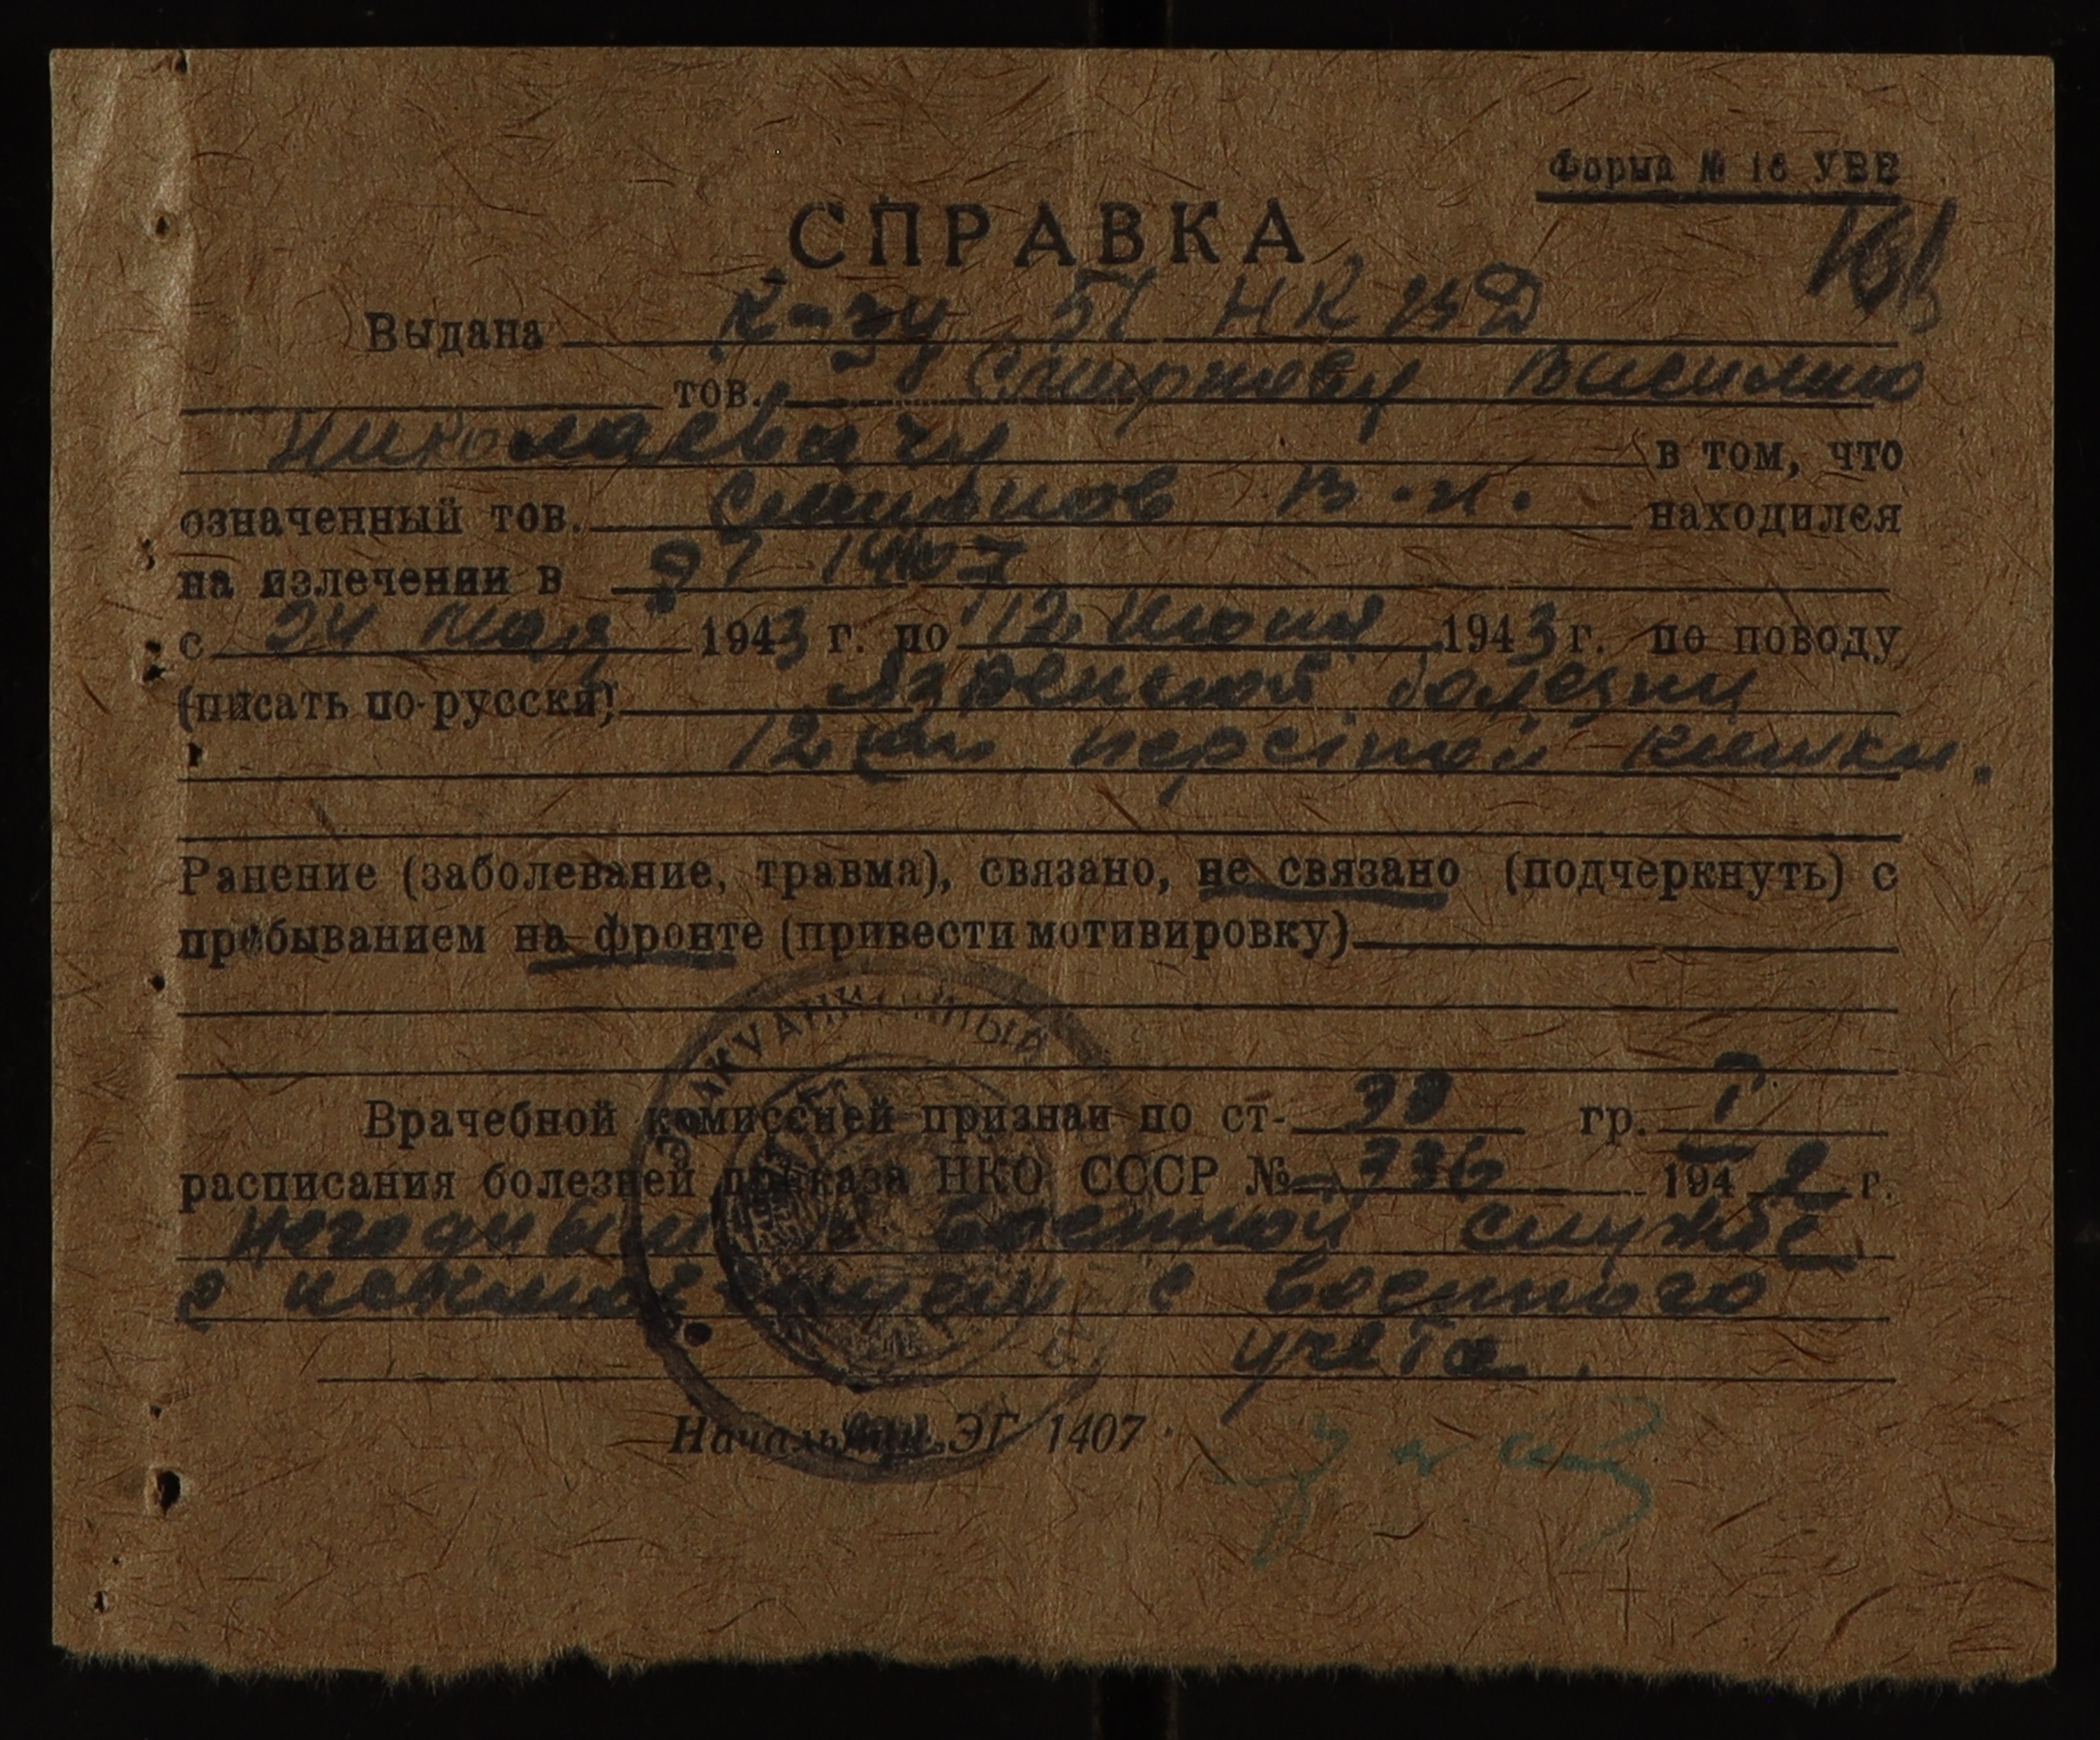 Форма № 16 УВЕ
161
СПРАВКА
Выдана К-зу 51 НКВД
тов. Смирнову Василию
Николаевичу в том, что
означенный тов. Смирнов В.Н. находился
на излечении в ЭГ 1407
с 24 мая 1943 г. по 12 июня 1943 г. по поводу
(писать по-русски) Язвенной болезни
12 ти перстной кишки.
Ранение (заболевание, травма), связано, не связано (подчеркнуть) с
пребыванием на фронте (привести мотивировку)
ЭВАКУАЦИОННЫЙ
Врачебной комиссией признан по ст. 33 гр. I
расписания болезней приказа НКО СССР № 336 1942 г.
Негодным к военной службе
с исключением с военного
учета.
Начальник ЭГ 1407